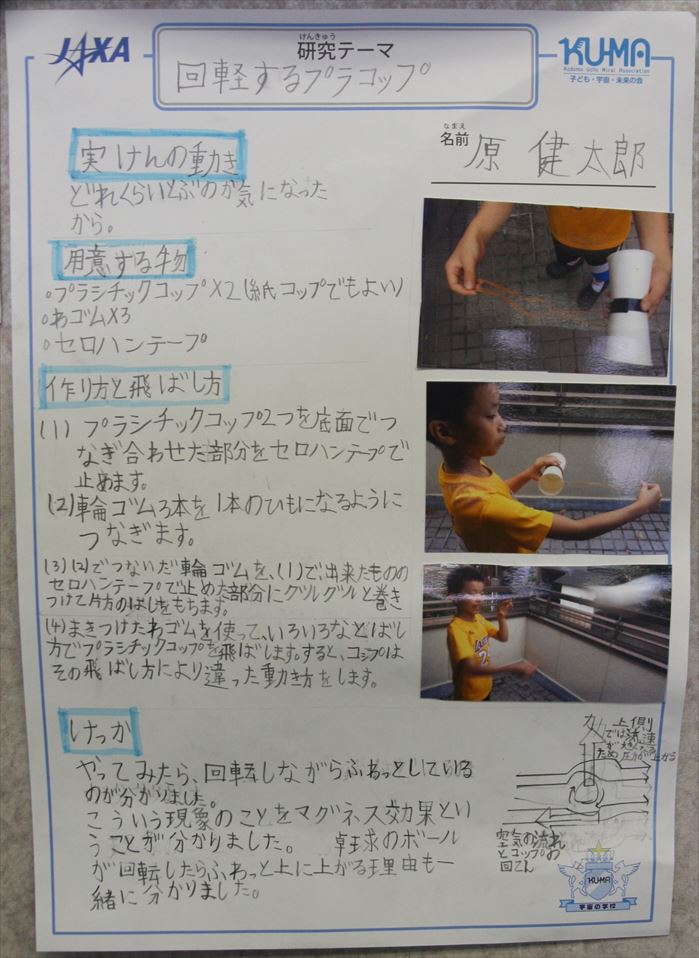 JAXA
けんきゅう
研究テーマ
回軽するプラコップ
KU-MA
Kodomo Uchu Mirai Association
子ども・宇宙・未来の会
なまえ
名前 原 健太郎
実けんの動き
どれくらいとぶのか気になった
から。
用意する物
○プラシチックコップ×2(紙コップでもよい)
○わゴム×3
○セロハンテープ
作り方と飛ばし方
(1) プラシチックコップ2つを底面でつ
なぎ合わせた部分をセロハンテープで
止めます。
(2)輪ゴム3本を1本のひもになるように
つなぎます。
(3)(2)でつないだ輪ゴムを、(1)で、出来たものの
セロハンテープで止めた部分にグルグルと巻き
つけて片方のはしをもちます。
(4)まきつけたわゴムを使って、いろいろなとばし
方でプラシチックコップを飛ばします。すると、コップは
その飛ばし方により違った動き方をします。
けっか
やってみたら、回転しながらふわっとしている
のが分かりました。
こういう現象のことをマグネス効果とい
うことが分かりました。 卓球のボール
が回転したらふわっと上に上がる理由も一
緒に分かりました。
力 上側
では流速
が大きくなる
ため 圧力が 上がる
空気の流れ
とコップの
回てん
KU-MA
宇宙の学校